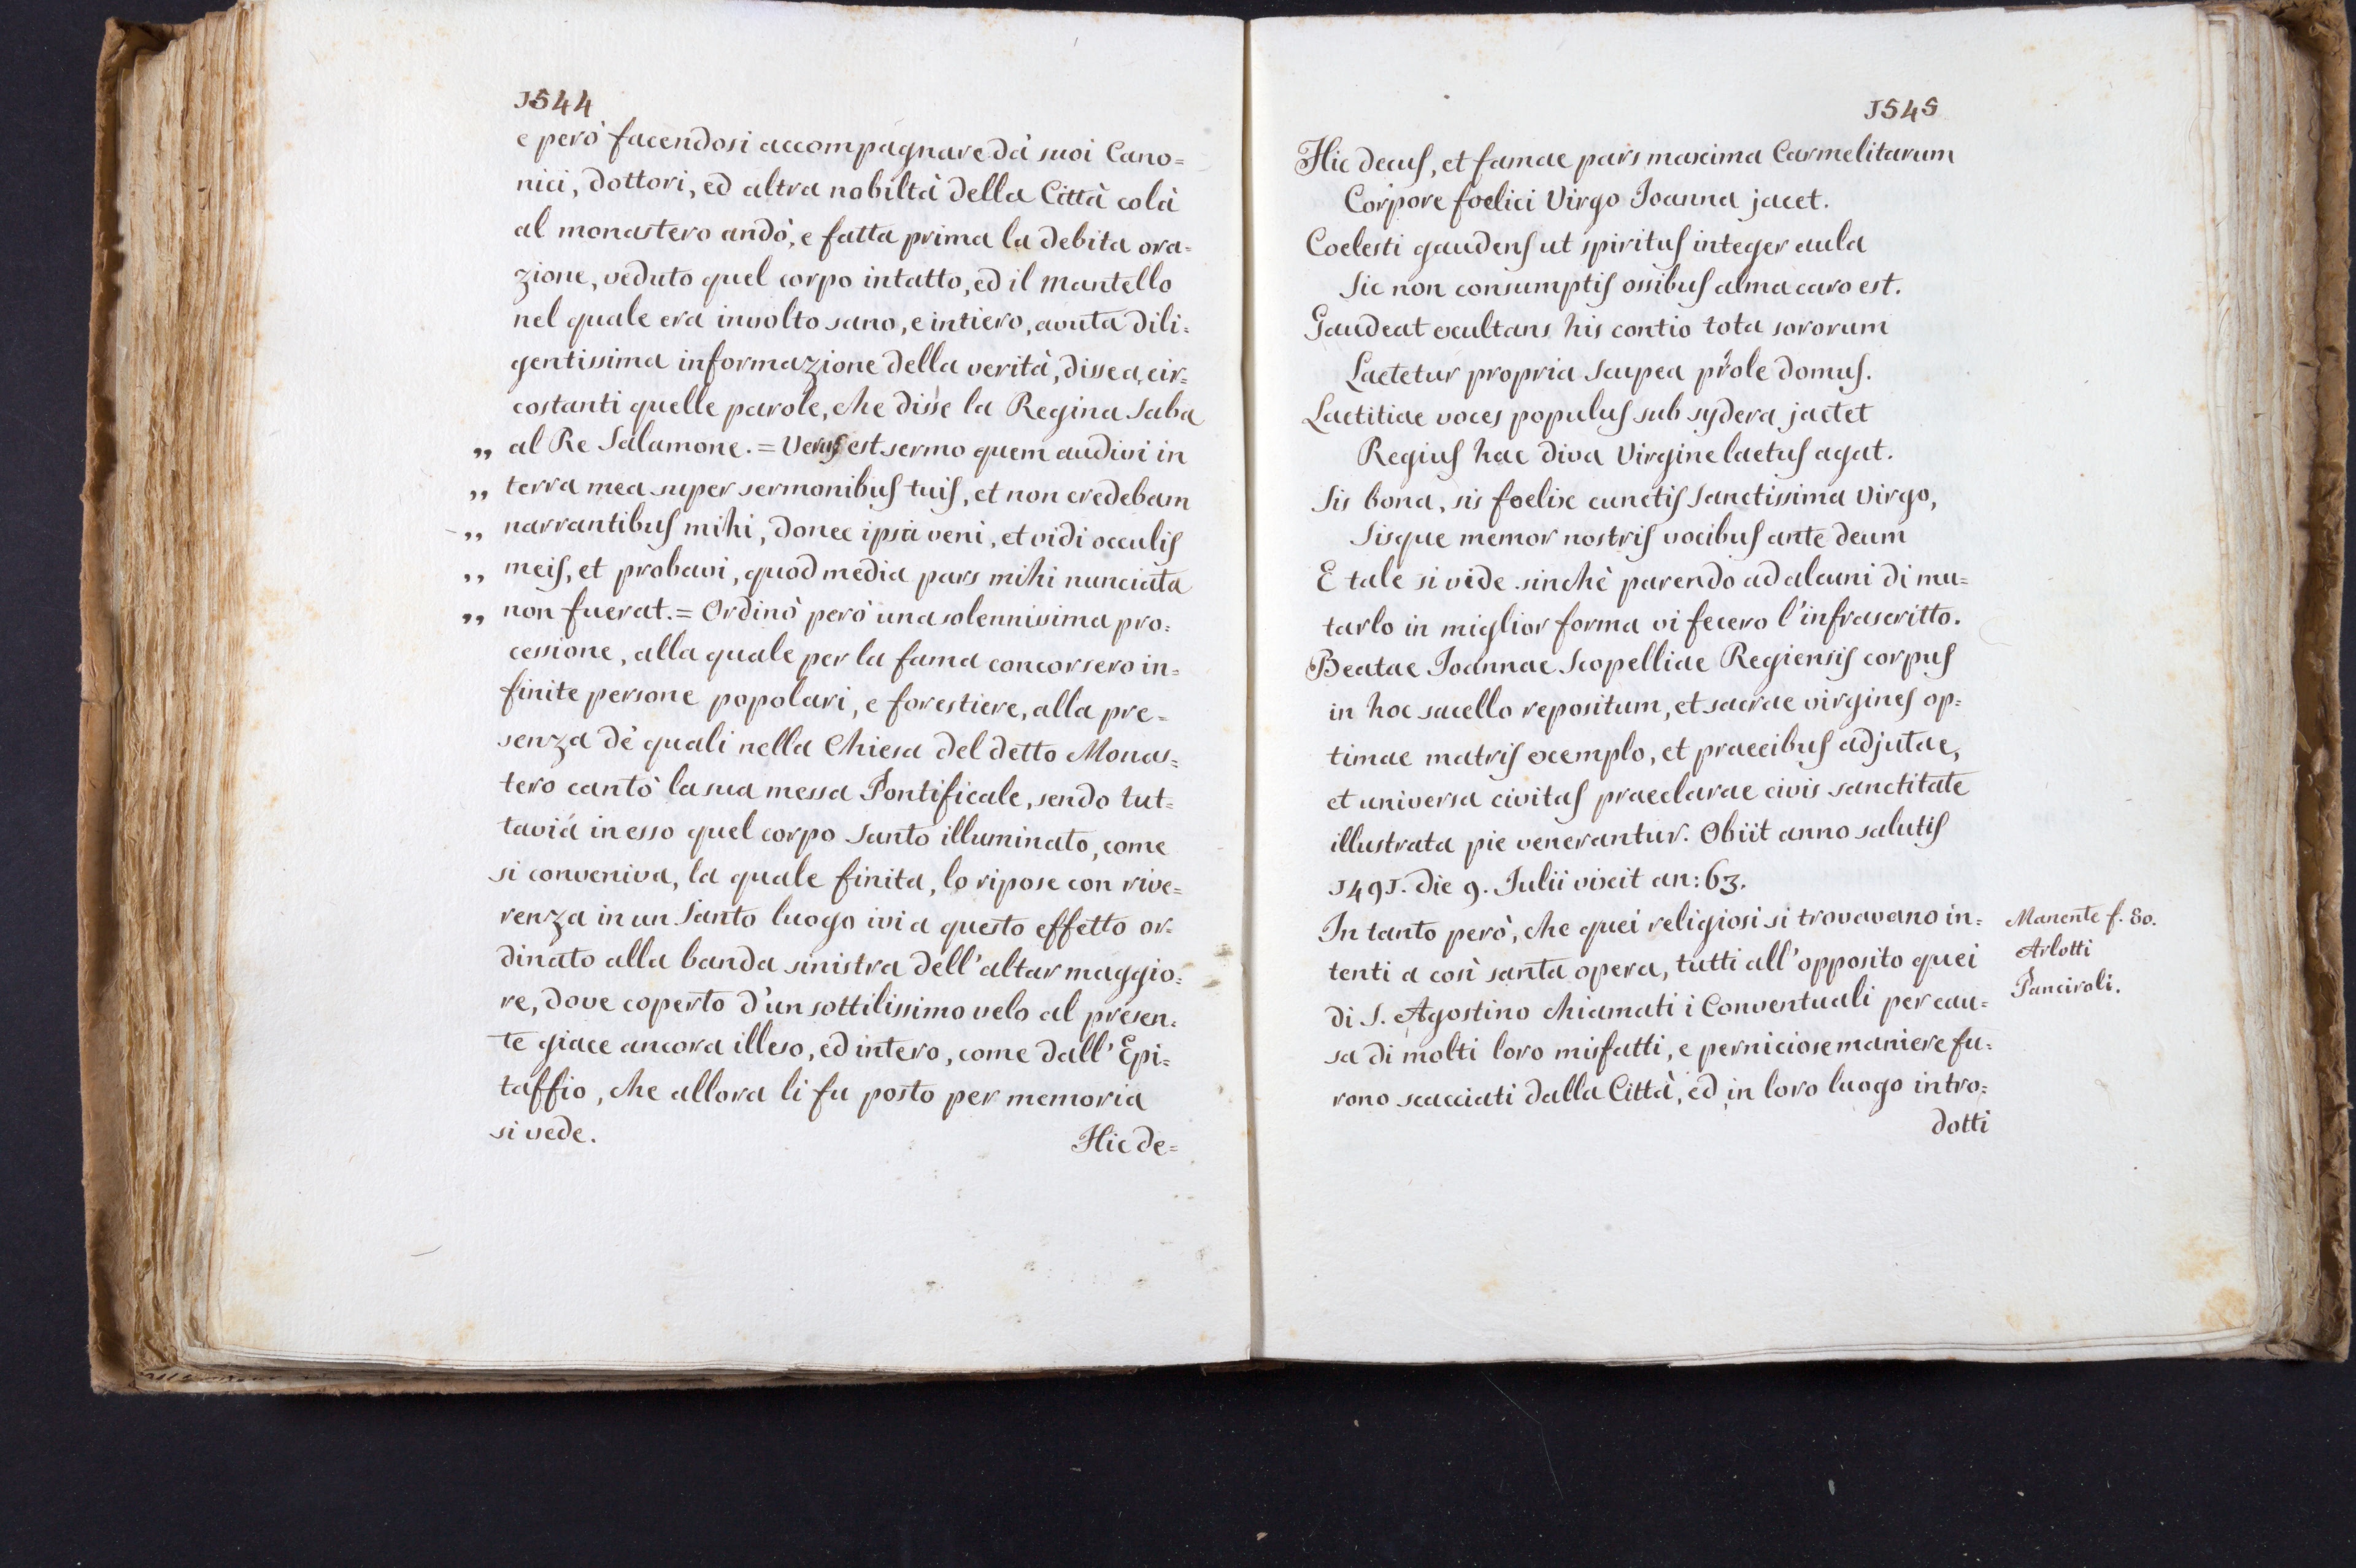 1544
e però facendosi accompagnare dà suoi Cano=
nici, dottori, ed altra nobiltà della Città colà
al monastero andò, e fatta prima la debita ora=
zione, veduto quel corpo intatto, ed il mantello
nel quale era involto sano, e intiero, avuta dili=
gentissima informazione della verità, disse a cir=
costanti quelle parole, che disse la Regina Saba
„ al Re Salamone. = Verus est sermo quem audivi in
„ terra mea super sermonibus tuis, et non credebam
„ narrantibus mihi, donec ipsa veni, et vidi occulis
„ meis, et probavi, quod media pars mihi nunciata
„ non fuerat. = Ordinò però una solennissima pro=
cessione, alla quale per la fama concorsero in=
finite persone popolari, e forestiere, alla pre=
senza dè quali nella Chiesa del detto Monas=
tero cantò la sua messa Pontificale, sendo tut=
tavià in esso quel corpo Santo illuminato, come
si conveniva, la quale finita, lo ripose con rive=
renza in un Santo luogo ivi a questo effetto or=
dinato alla banda sinistra dell'altar maggio=
re, dove coperto d'un sottilissimo velo al presen=
te giace ancora illeso, ed intero, come dall' Epi=
taffio, che allora li fu posto per memoria
si vede.
Hic de=
1545
Hic decus, et famae pars maxima Carmelitarum
Corpore foelici Virgo Joanna jacet.
Coelesti gaudens ut spiritus integer aula
Sic non consumptis ossibus alma caro est.
Gaudeat exultans his contio tota sororum
Laetetur propria Scupea prole domus.
Laetitiae voces populus sub sydera jactet
Regius hac diva Virgine laetus agat.
Sis bona, sis foelix cunctis Sanctissima Virgo,
Sisque memor nostris vocibus ante deum
E tale si vide sinchè parendo ad alcuni di mu=
tarlo in miglior forma vi fecero l'infrascritto.
Beatae Joannae Scopelliae Regiensis corpus
in hoc sacello repositum, et sacrae virgines op=
timae matris exemplo, et praecibus adjutae,
et universa civitas praeclarae civis sanctitate
illustrata pie venerantur. Obiit anno salutis
1491. die 9. Julii vixit an: 63.
In tanto però, che quei religiosi si trovavano in=
tenti a così santa opera, tutti all'opposito quei
di S. Agostino chiamati i Conventuali per cau=
sa di molti loro misfatti, e perniciose maniere fu=
rono scacciati dalla Città, ed in loro luogo intro=
dotti
Manente f. 80.
Arlotti
Panciroli.